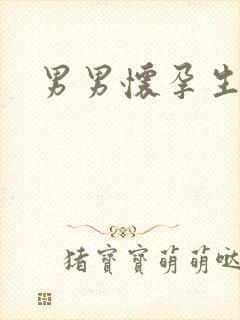 男男懷孕生
猪寶寶萌萌哒